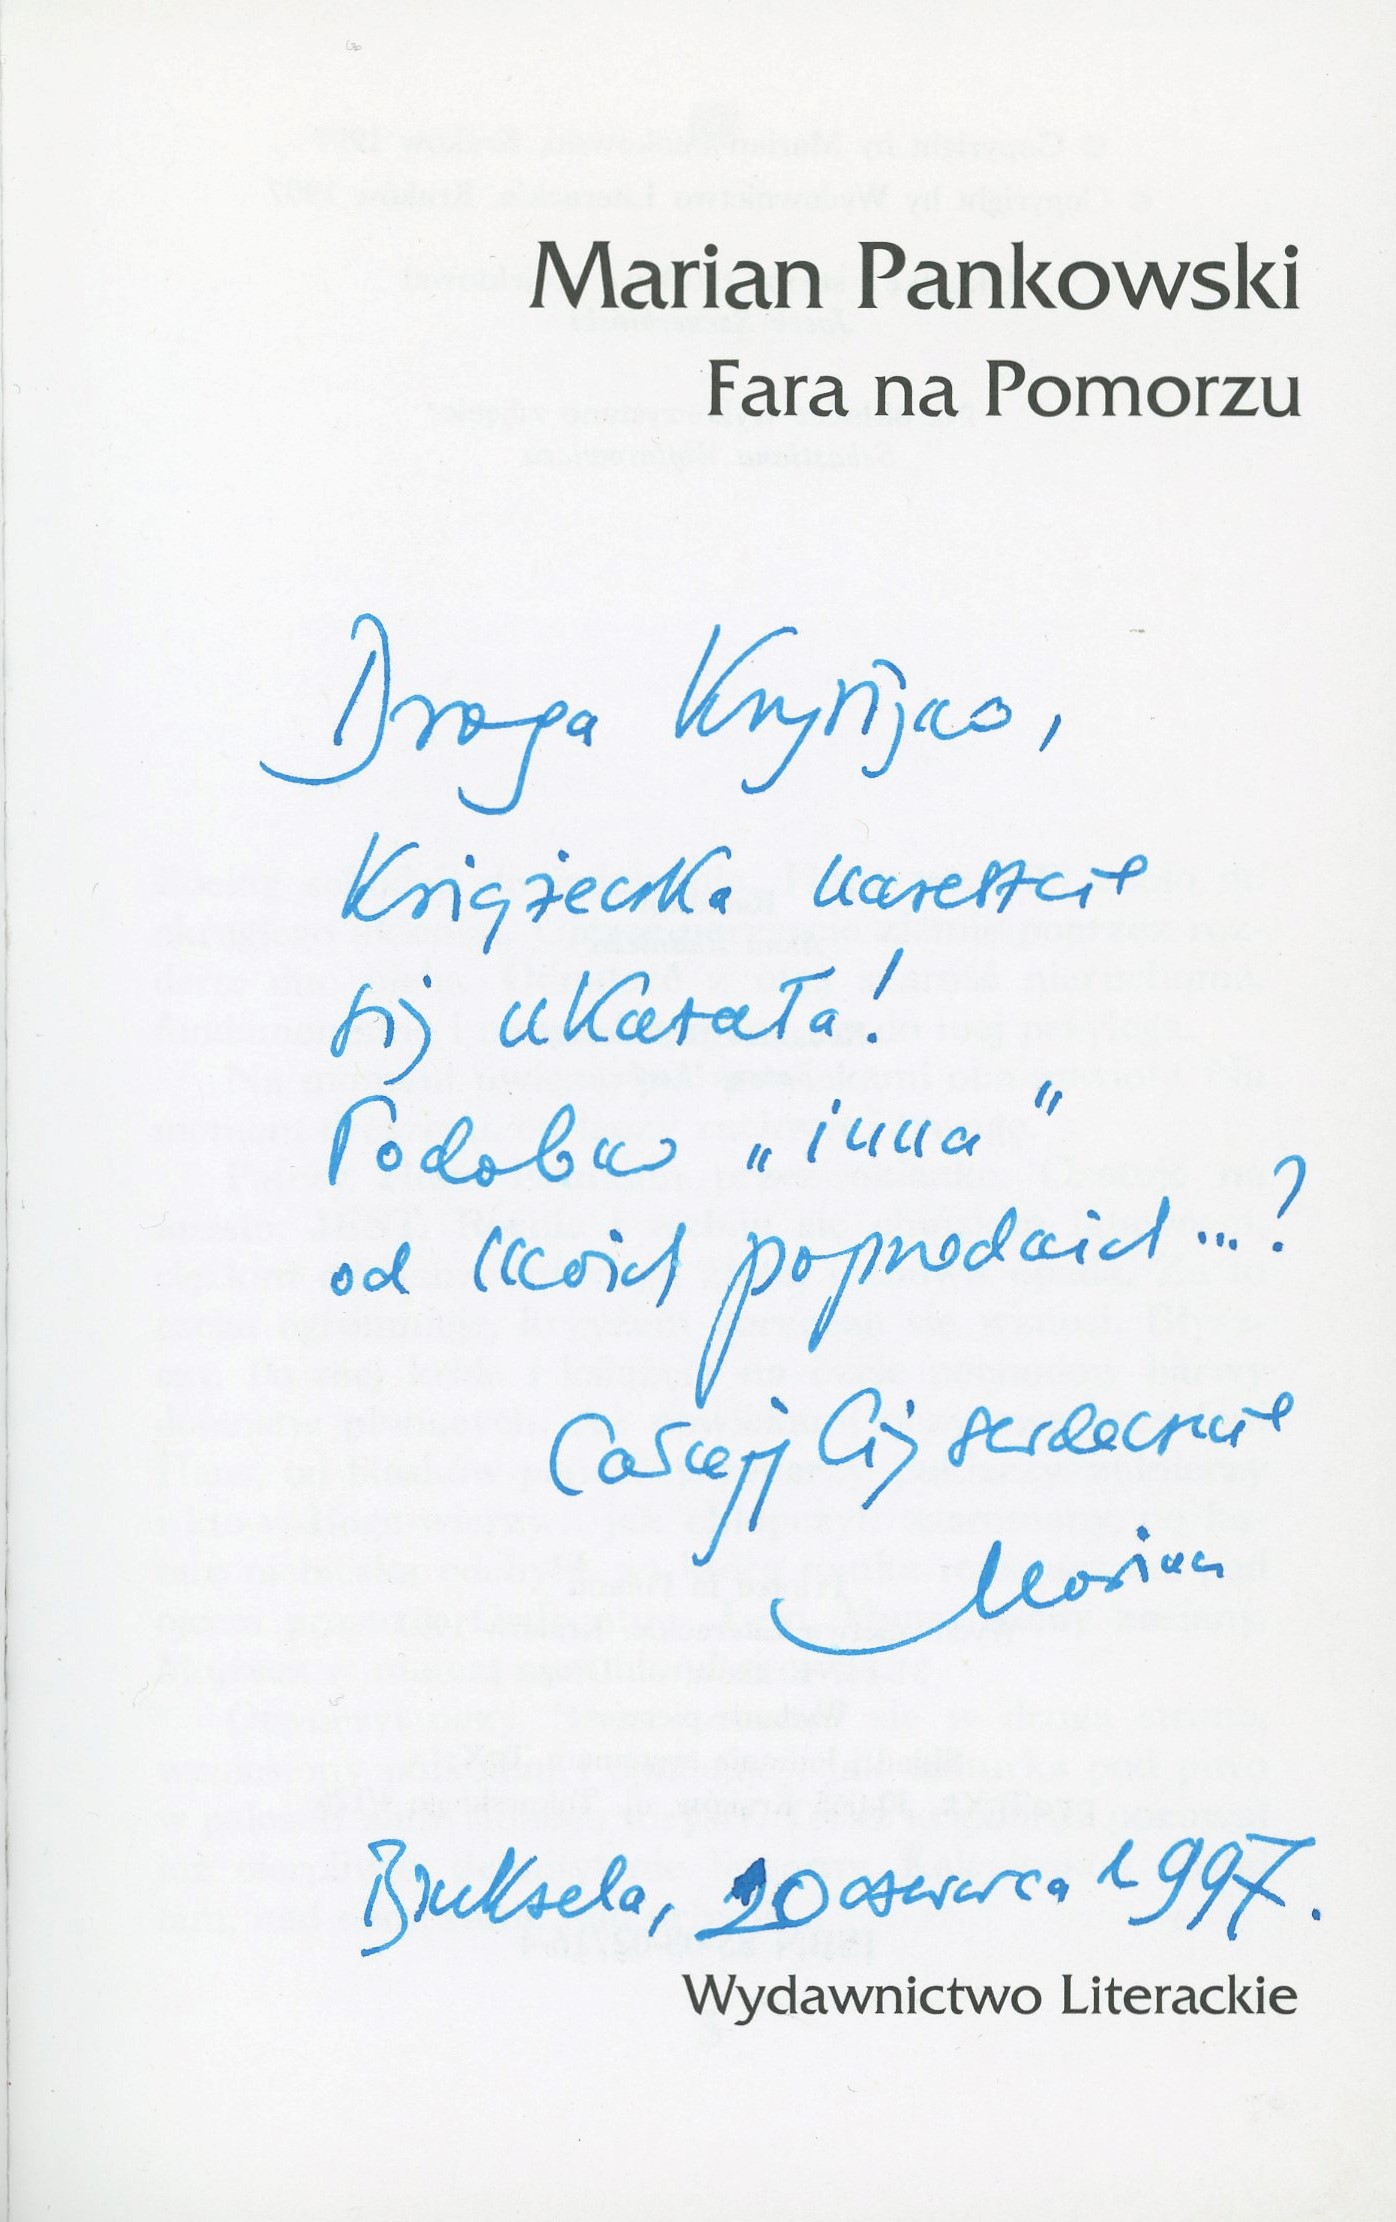 Marian Pankowski
Fara na Pomorzu
Droga Krysijko,
Książeczka nareszcie
się ukazała!
Podobno „inna”
od moich poprzednich...?
Całuję Cię serdecznie
Marian
Bruksela, 20 czerwca 1997.
Wydawnictwo Literackie